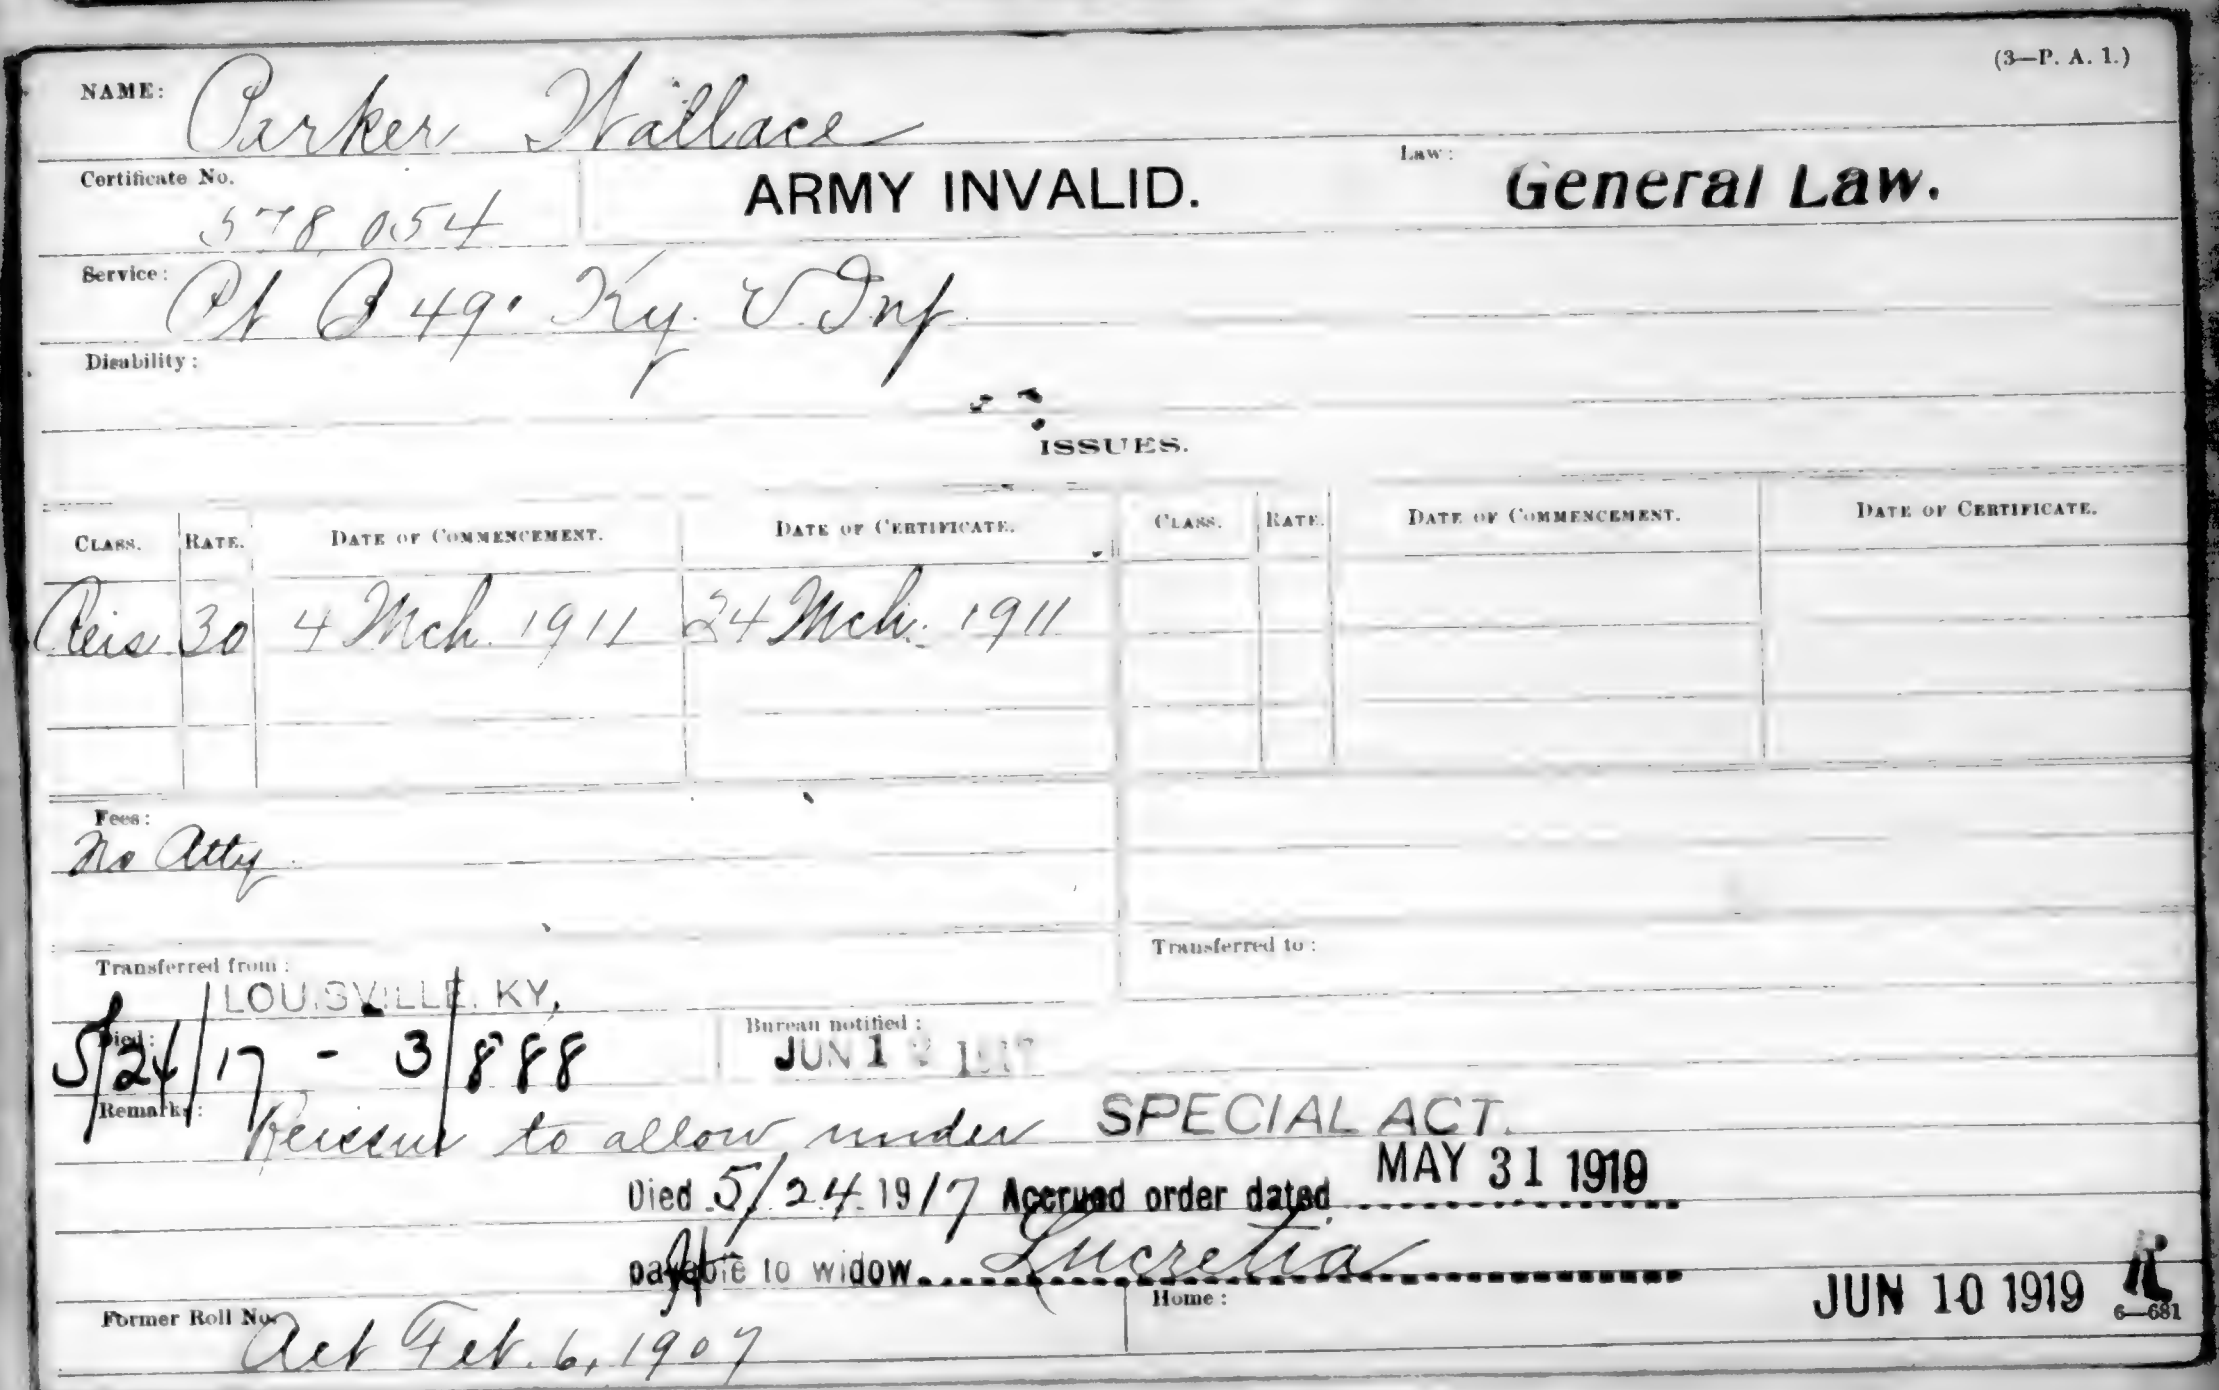 (3—P. A. 1.)
NAME: Parker Wallace
Certificate No. 578,054 ARMY INVALID. Law: General Law.
Service: Pt B 49" Ky. V Inf
Disability:
ISSUES.
CLASS. RATE. DATE OF COMMENCEMENT. DATE OF CERTIFICATE. CLASS. RATE. DATE OF COMMENCEMENT. DATE OF CERTIFICATE.
Reis 30 4 Mch. 1911 24 Mch. 1911
Fees:
No Atty
Transferred from: Transferred to:
LOUISVILLE, KY,
Died: Bureau notified:
5/24/17 - 3/888 JUN 1
Remarks: Reissue to allow under SPECIAL ACT.
Died 5/24 1917 Accrued order dated MAY 31 1919
payable to widow Lucretia
Home: JUN 10 1919
6—681
Former Roll No. Act Feb. 6, 1907